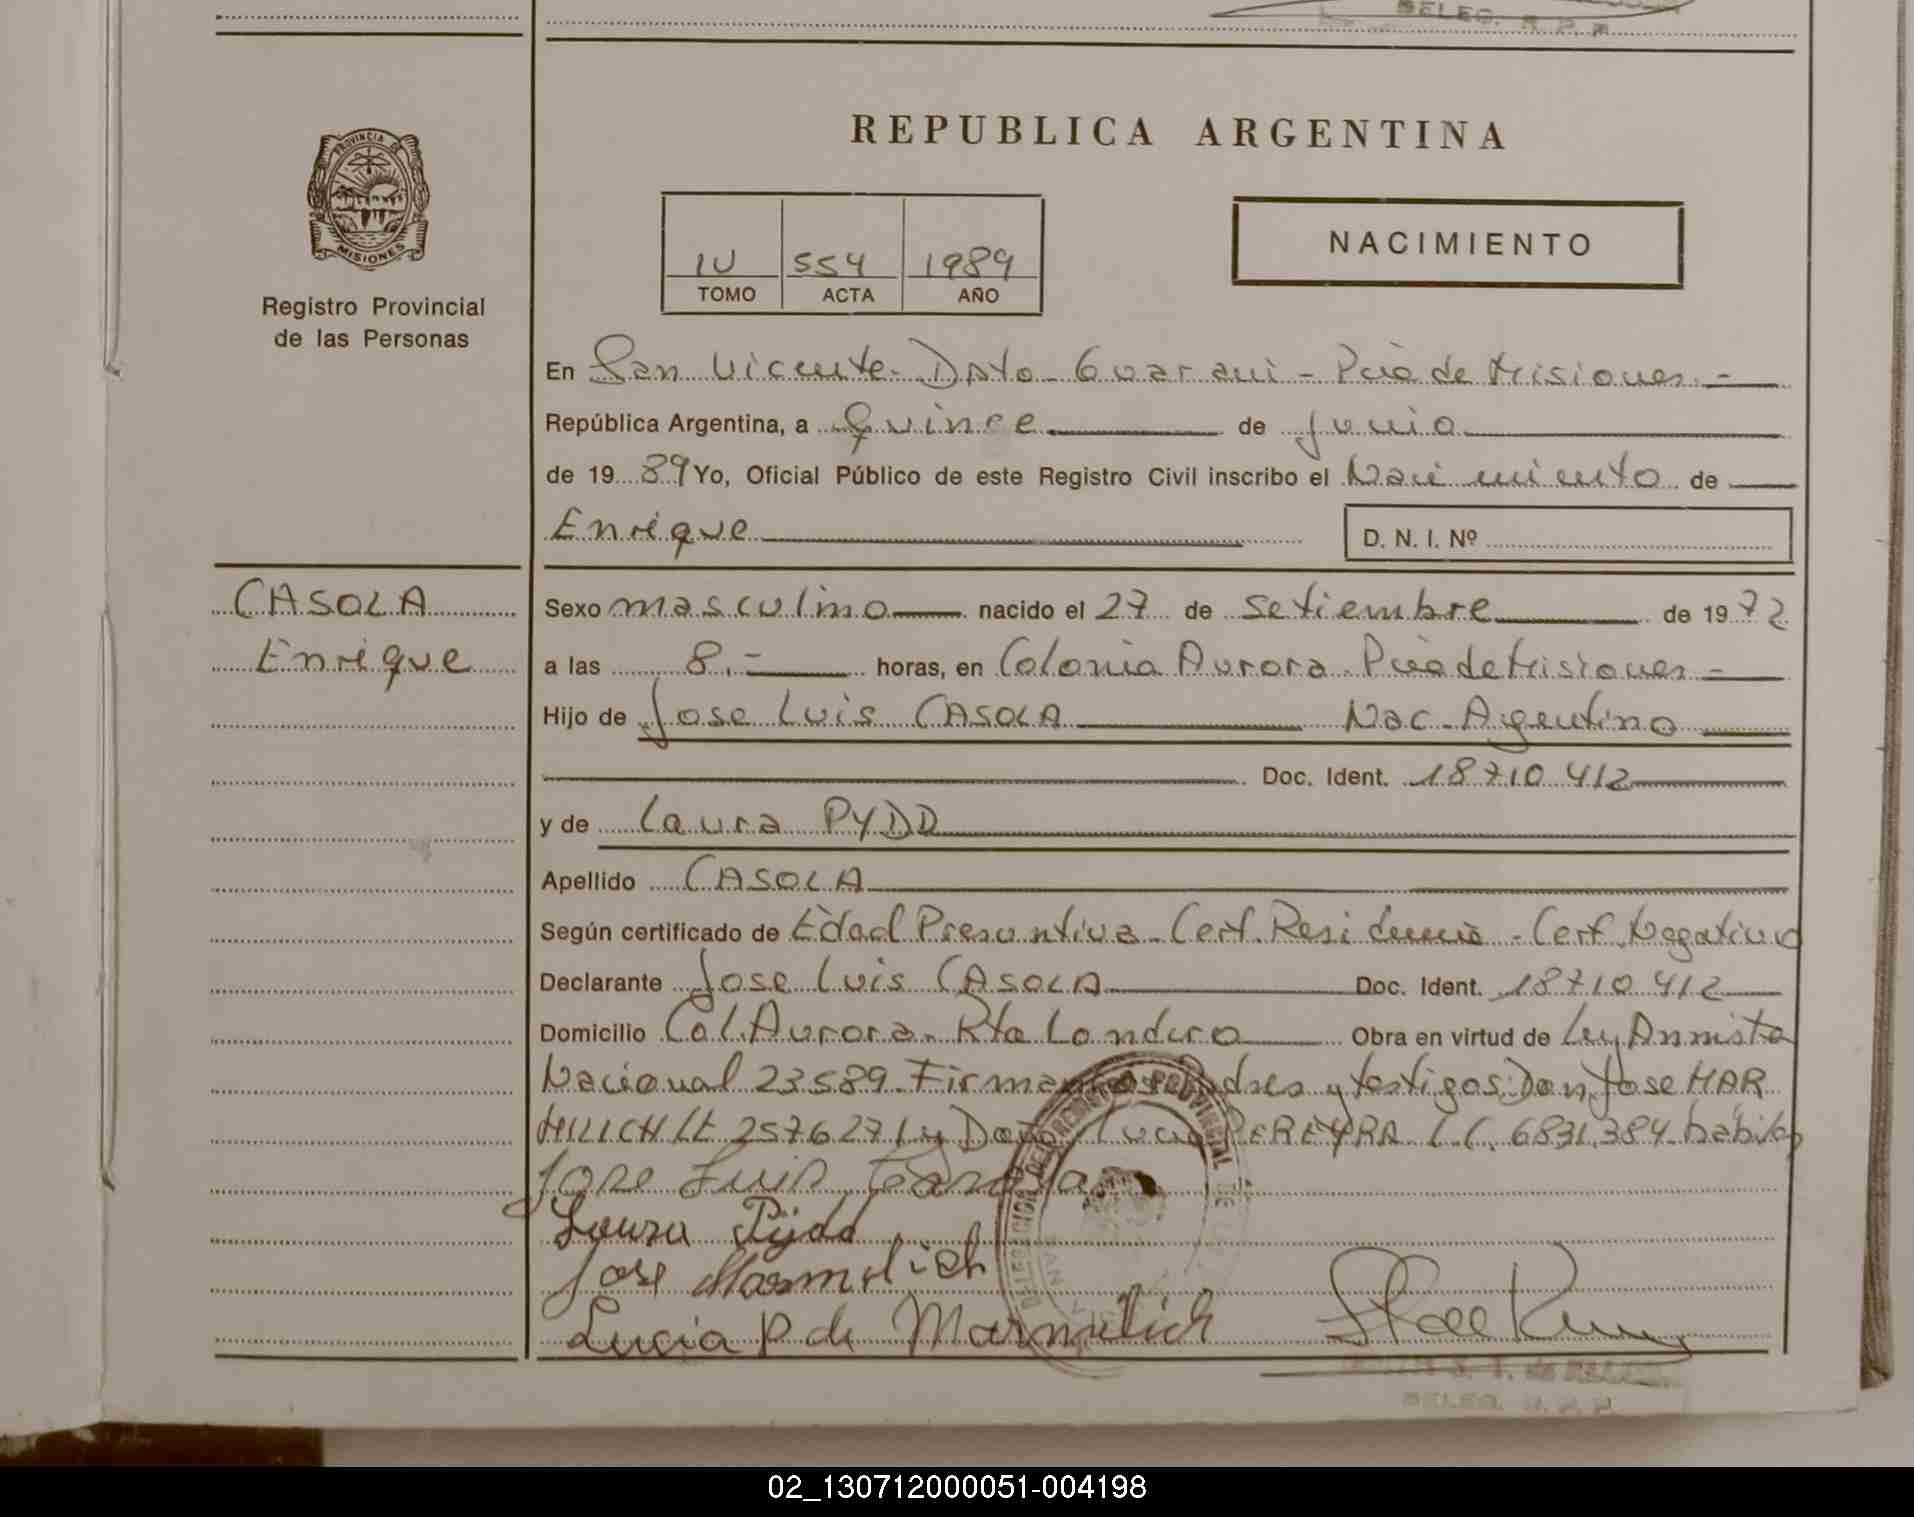 DELEG. R. P. P.
REPUBLICA ARGENTINA
PROVINCIA DE
MISIONES
Registro Provincial
de las Personas
IV 554 1989
TOMO ACTA AÑO
NACIMIENTO
En San Vicente - Dpto - Guarani - Pcia de Misiones -
República Argentina, a Quince de Junio
de 19 89 Yo, Oficial Público de este Registro Civil inscribo el Nacimiento de
Enrique D. N. I. Nº
CASOLA
Enrique
Sexo masculino nacido el 27 de setiembre de 19 72
a las 8.- horas, en Colonia Aurora - Pcia de Misiones -
Hijo de Jose Luis CASOLA Nac - Argentino
Doc. Ident. 18710412
y de Laura PYDD
Apellido CASOLA
Según certificado de Edad Presuntiva - Cert. Residencia - Cert. Negativo
Declarante Jose Luis CASOLA Doc. Ident. 18710412
Domicilio Col. Aurora - Rta Londero Obra en virtud de Ley Amnistia
Nacional 23589 - Firman los Padres y testigos: Don Jose MAR
MILICH LE 2576271 y Doña Lucia PEREYRA L.C. 6831.384 - habiles
Jose Luis Casola
Laura Pydd
Jose Marmilich
Lucia P de Marmilich
DELEG. R. P. P.
02_130712000051-004198